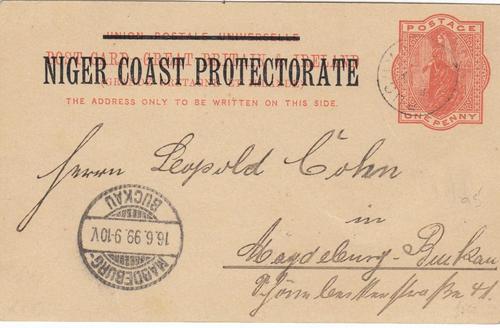 UNION POSTALE UNIVERSELLE
POST CARD. GREAT BRITAIN & IRELAND
NIGER COAST PROTECTORATE
THE ADDRESS ONLY TO BE WRITTEN ON THIS SIDE.
POSTAGE
ONE PENNY
Herrn Leopold Cohn
in
Magdeburg-Buckau
Schönebeckerstraße 41.
BUCKAU
16.6.99.9-10V.
MAGDEBURG-